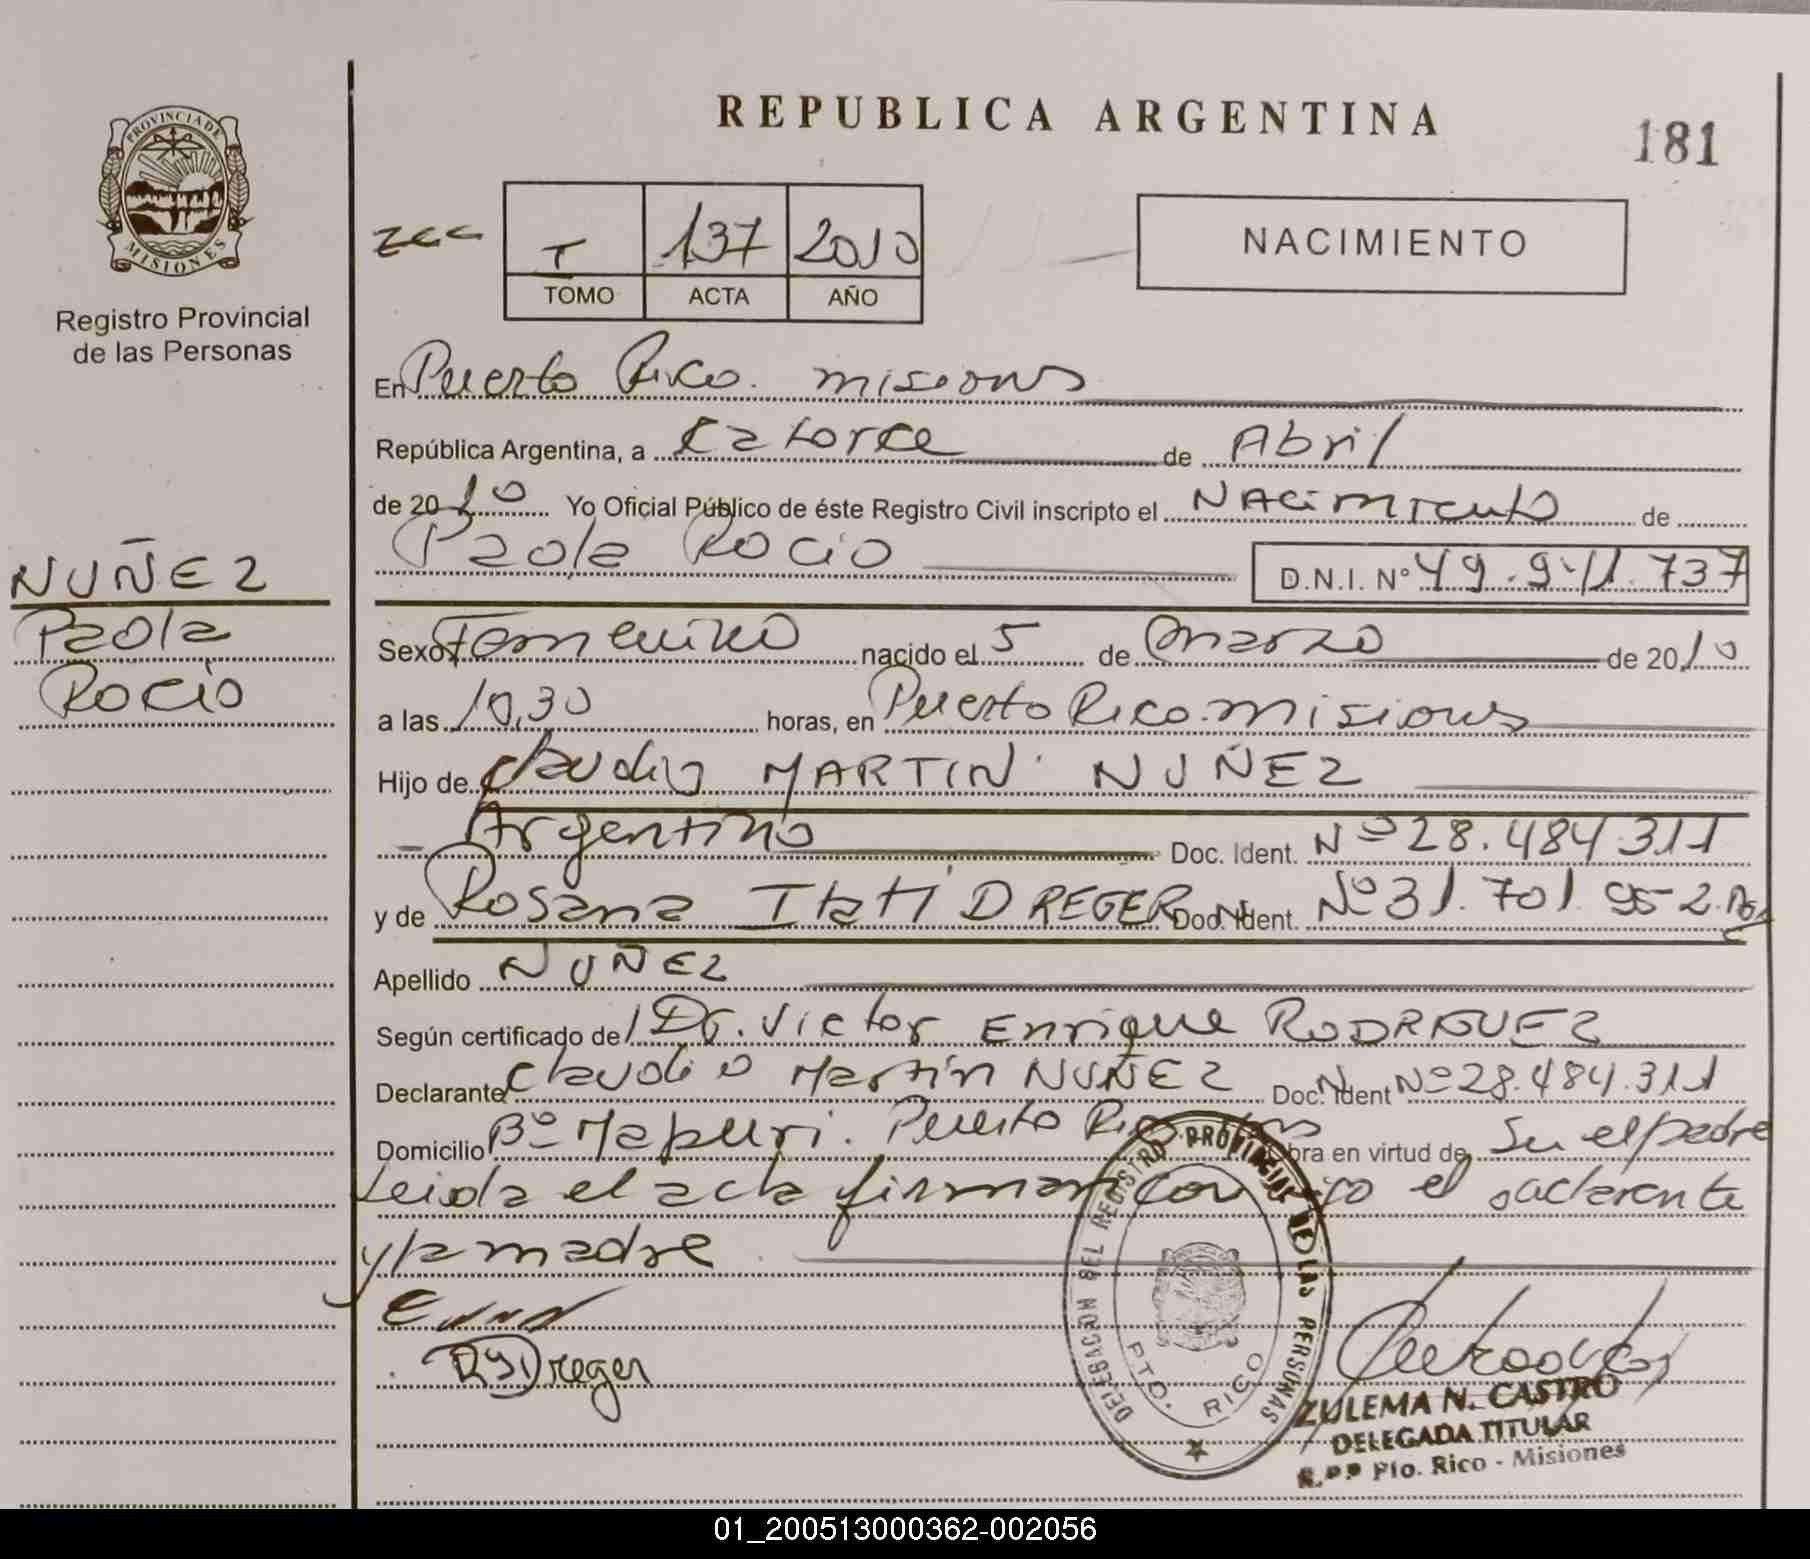 REPUBLICA ARGENTINA
181
PROVINCIA DE
MISIONES
Registro Provincial
de las Personas
T 137 2010
TOMO ACTA AÑO
NACIMIENTO
En Puerto Rico. misiones
República Argentina, a Catorce de Abril
de 2010 Yo Oficial Público de éste Registro Civil inscripto el Nacimiento de
Paola Rocio D.N.I. Nº 49.941.737
NUÑEZ
Paola
Rocio
Sexo Femenino nacido el 5 de marzo de 2010
a las 10,30 horas, en Puerto Rico. misiones
Hijo de Claudio MARTIN NUÑEZ
Argentino Doc. Ident. Nº 28.484.311
y de Rosana Itati DREGER Doc. Ident. Nº 31.701.952.
Apellido NUÑEZ
Según certificado de Dr. Victor Enrique RODRIGUEZ
Declarante Claudio Martin NUÑEZ Doc. Ident Nº 28.484.311
Domicilio Bº Puerto Obra en virtud de Su el padre
Leida el acta firman el declarante
y la madre
Dreger
DELEGACION DEL REGISTRO PROVINCIAL DE LAS PERSONAS
PTO. RICO
ZULEMA N. CASTRO
DELEGADA TITULAR
R.P.P Pto. Rico - Misiones
01_200513000362-002056